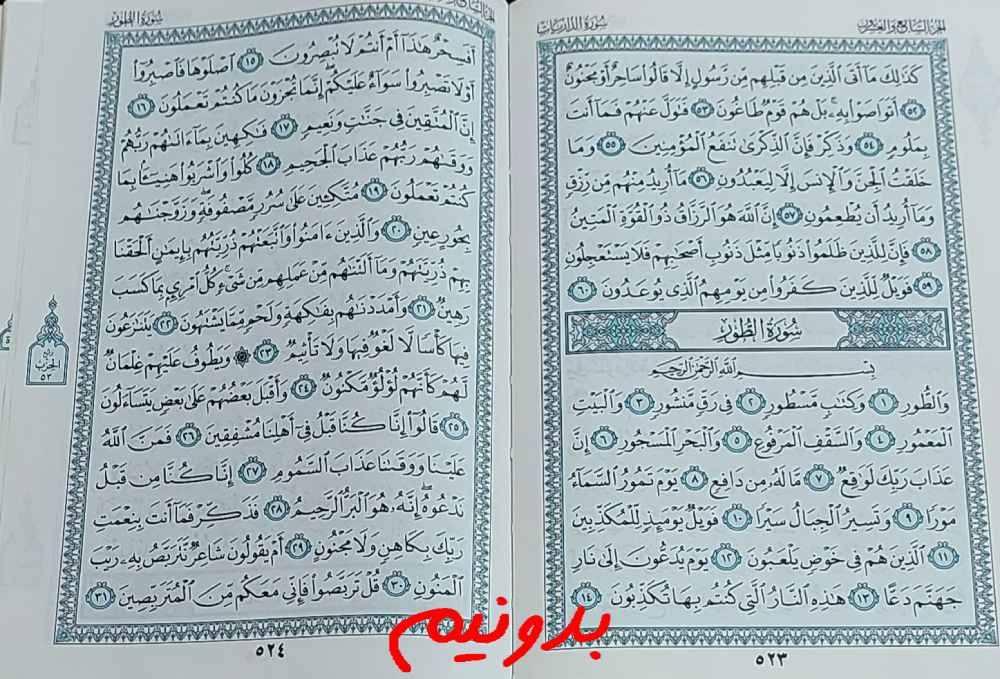 الجزء السابع والعشرون
سورة الذاريات
كَذَٰلِكَ مَآ أَتَى ٱلَّذِينَ مِن قَبْلِهِم مِّن رَّسُولٍ إِلَّا قَالُوا۟ سَاحِرٌ أَوْ مَجْنُونٌ
٥٢ أَتَوَاصَوْا۟ بِهِۦ ۚ بَلْ هُمْ قَوْمٌ طَاغُونَ ٥٣ فَتَوَلَّ عَنْهُمْ فَمَآ أَنتَ
بِمَلُومٍ ٥٤ وَذَكِّرْ فَإِنَّ ٱلذِّكْرَىٰ تَنفَعُ ٱلْمُؤْمِنِينَ ٥٥ وَمَا
خَلَقْتُ ٱلْجِنَّ وَٱلْإِنسَ إِلَّا لِيَعْبُدُونِ ٥٦ مَآ أُرِيدُ مِنْهُم مِّن رِّزْقٍ
وَمَآ أُرِيدُ أَن يُطْعِمُونِ ٥٧ إِنَّ ٱللَّهَ هُوَ ٱلرَّزَّاقُ ذُو ٱلْقُوَّةِ ٱلْمَتِينُ
٥٨ فَإِنَّ لِلَّذِينَ ظَلَمُوا۟ ذَنُوبًا مِّثْلَ ذَنُوبِ أَصْحَٰبِهِمْ فَلَا يَسْتَعْجِلُونِ
٥٩ فَوَيْلٌ لِّلَّذِينَ كَفَرُوا۟ مِن يَوْمِهِمُ ٱلَّذِى يُوعَدُونَ ٦٠
سُورَةُ الطُّورِ
بِسْمِ ٱللَّهِ ٱلرَّحْمَٰنِ ٱلرَّحِيمِ
وَٱلطُّورِ ١ وَكِتَٰبٍ مَّسْطُورٍ ٢ فِى رَقٍّ مَّنشُورٍ ٣ وَٱلْبَيْتِ
ٱلْمَعْمُورِ ٤ وَٱلسَّقْفِ ٱلْمَرْفُوعِ ٥ وَٱلْبَحْرِ ٱلْمَسْجُورِ ٦ إِنَّ
عَذَابَ رَبِّكَ لَوَٰقِعٌ ٧ مَّا لَهُۥ مِن دَافِعٍ ٨ يَوْمَ تَمُورُ ٱلسَّمَآءُ
مَوْرًا ٩ وَتَسِيرُ ٱلْجِبَالُ سَيْرًا ١٠ فَوَيْلٌ يَوْمَئِذٍ لِّلْمُكَذِّبِينَ
١١ ٱلَّذِينَ هُمْ فِى خَوْضٍ يَلْعَبُونَ ١٢ يَوْمَ يُدَعُّونَ إِلَىٰ نَارِ
جَهَنَّمَ دَعًّا ١٣ هَٰذِهِ ٱلنَّارُ ٱلَّتِى كُنتُم بِهَا تُكَذِّبُونَ ١٤
٥٢٣
سورة الطور
أَفَسِحْرٌ هَٰذَآ أَمْ أَنتُمْ لَا تُبْصِرُونَ ١٥ ٱصْلَوْهَا فَٱصْبِرُوٓا۟
أَوْ لَا تَصْبِرُوا۟ سَوَآءٌ عَلَيْكُمْ ۖ إِنَّمَا تُجْزَوْنَ مَا كُنتُمْ تَعْمَلُونَ ١٦
إِنَّ ٱلْمُتَّقِينَ فِى جَنَّٰتٍ وَنَعِيمٍ ١٧ فَٰكِهِينَ بِمَآ ءَاتَىٰهُمْ رَبُّهُمْ
وَوَقَىٰهُمْ رَبُّهُمْ عَذَابَ ٱلْجَحِيمِ ١٨ كُلُوا۟ وَٱشْرَبُوا۟ هَنِيٓـًٔۢا بِمَا
كُنتُمْ تَعْمَلُونَ ١٩ مُتَّكِـِٔينَ عَلَىٰ سُرُرٍ مَّصْفُوفَةٍ ۖ وَزَوَّجْنَٰهُم
بِحُورٍ عِينٍ ٢٠ وَٱلَّذِينَ ءَامَنُوا۟ وَٱتَّبَعَتْهُمْ ذُرِّيَّتُهُم بِإِيمَٰنٍ أَلْحَقْنَا
بِهِمْ ذُرِّيَّتَهُمْ وَمَآ أَلَتْنَٰهُم مِّنْ عَمَلِهِم مِّن شَىْءٍ ۚ كُلُّ ٱمْرِئٍۭ بِمَا كَسَبَ
رَهِينٌ ٢١ وَأَمْدَدْنَٰهُم بِفَٰكِهَةٍ وَلَحْمٍ مِّمَّا يَشْتَهُونَ ٢٢ يَتَنَٰزَعُونَ
فِيهَا كَأْسًا لَّا لَغْوٌ فِيهَا وَلَا تَأْثِيمٌ ٢٣ ۞ وَيَطُوفُ عَلَيْهِمْ غِلْمَانٌ
لَّهُمْ كَأَنَّهُمْ لُؤْلُؤٌ مَّكْنُونٌ ٢٤ وَأَقْبَلَ بَعْضُهُمْ عَلَىٰ بَعْضٍ يَتَسَآءَلُونَ
٢٥ قَالُوٓا۟ إِنَّا كُنَّا قَبْلُ فِىٓ أَهْلِنَا مُشْفِقِينَ ٢٦ فَمَنَّ ٱللَّهُ
عَلَيْنَا وَوَقَىٰنَا عَذَابَ ٱلسَّمُومِ ٢٧ إِنَّا كُنَّا مِن قَبْلُ
نَدْعُوهُ ۖ إِنَّهُۥ هُوَ ٱلْبَرُّ ٱلرَّحِيمُ ٢٨ فَذَكِّرْ فَمَآ أَنتَ بِنِعْمَتِ
رَبِّكَ بِكَاهِنٍ وَلَا مَجْنُونٍ ٢٩ أَمْ يَقُولُونَ شَاعِرٌ نَّتَرَبَّصُ بِهِۦ رَيْبَ
ٱلْمَنُونِ ٣٠ قُلْ تَرَبَّصُوا۟ فَإِنِّى مَعَكُم مِّنَ ٱلْمُتَرَبِّصِينَ ٣١
ربع
الحزب
٥٣
٥٢٤
بدونیم